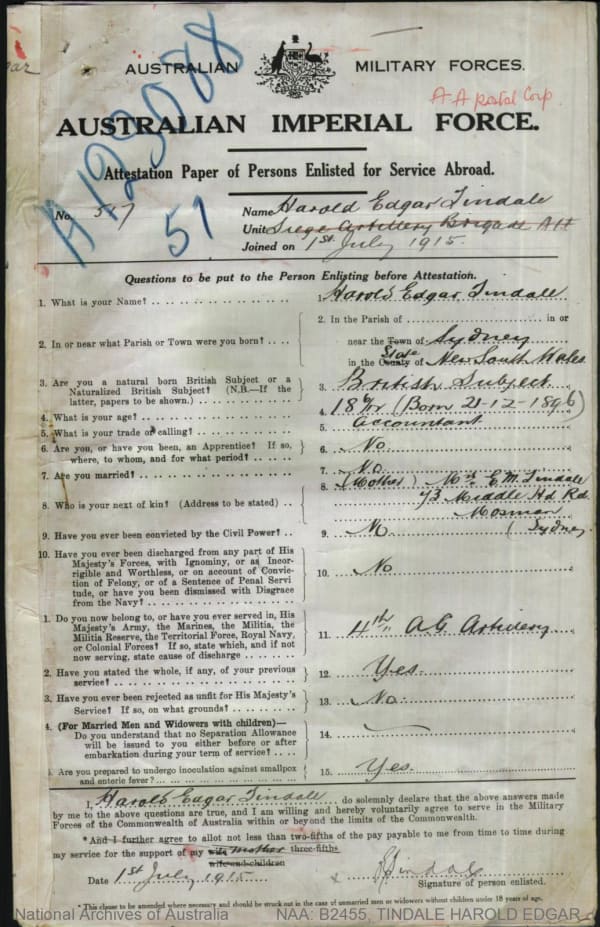 AUSTRALIAN MILITARY FORCES.
A A Postal Corp
AUSTRALIAN IMPERIAL FORCE.
Attestation Paper of Persons Enlisted for Service Abroad.
A123088
51
No. 517
Name Harold Edgar Tindale
Unit Siege Artillery Brigade AIF
Joined on 1st July 1915
Questions to be put to the Person Enlisting before Attestation.
1. What is your Name? 1. Harold Edgar Tindale
2. In or near what Parish or Town were you born? 2. In the Parish of in or
near the Town of Sydney
in the County State of New South Wales
3. Are you a natural born British Subject or a
Naturalized British Subject? (N.B.—If the
latter, papers to be shown.) 3. British Subject
4. What is your age? 4. 18 (Born 21-12-1896)
5. What is your trade or calling? 5. Accountant
6. Are you, or have you been, an Apprentice? If so,
where, to whom, and for what period? 6. No
7. Are you married? 7. No
8. Who is your next of kin? (Address to be stated) 8. (Mother) Mrs E. M. Tindale
73 Middle Hd Rd
Mosman
Sydney
9. Have you ever been convicted by the Civil Power? 9. No
10. Have you ever been discharged from any part of His
Majesty's Forces, with Ignominy, or as Incor-
rigible and Worthless, or on account of Convic-
tion of Felony, or of a Sentence of Penal Servi
tude, or have you been dismissed with Disgrace
from the Navy? 10. No
1. Do you now belong to, or have you ever served in, His
Majesty's Army, the Marines, the Militia, the
Militia Reserve, the Territorial Force, Royal Navy,
or Colonial Forces? If so, state which, and if not
now serving, state cause of discharge 11. 4th A.G. Artillery
2. Have you stated the whole, if any, of your previous
service? 12. Yes
3. Have you ever been rejected as unfit for His Majesty's
Service? If so, on what grounds? 13. No
4. (For Married Men and Widowers with children)—
Do you understand that no Separation Allowance
will be issued to you either before or after
embarkation during your term of service? 14.
Are you prepared to undergo inoculation against smallpox
and enteric fever? 15. Yes.
I, Harold Edgar Tindale do solemnly declare that the above answers made
by me to the above questions are true, and I am willing and hereby voluntarily agree to serve in the Military
Forces of the Commonwealth of Australia within or beyond the limits of the Commonwealth.
*And I further agree to allot not less than two-fifths of the pay payable to me from time to time during
three-fifths
my service for the support of my wife mother
wife and children
Date 1st July 1915
H Tindale
Signature of person enlisted.
* This clause to be amended where necessary and should be struck out in the case of unmarried men or widowers without children under 18 years of age.
National Archives of Australia NAA: B2455, TINDALE HAROLD EDGAR